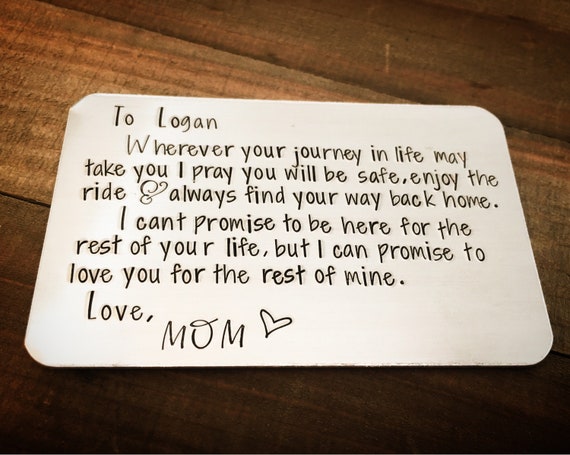 To Logan
Wherever your journey in life may
take you I pray you will be safe, enjoy the
ride & always find your way back home.
I cant promise to be here for the
rest of your life, but I can promise to
love you for the rest of mine.
Love,
MOM ♡